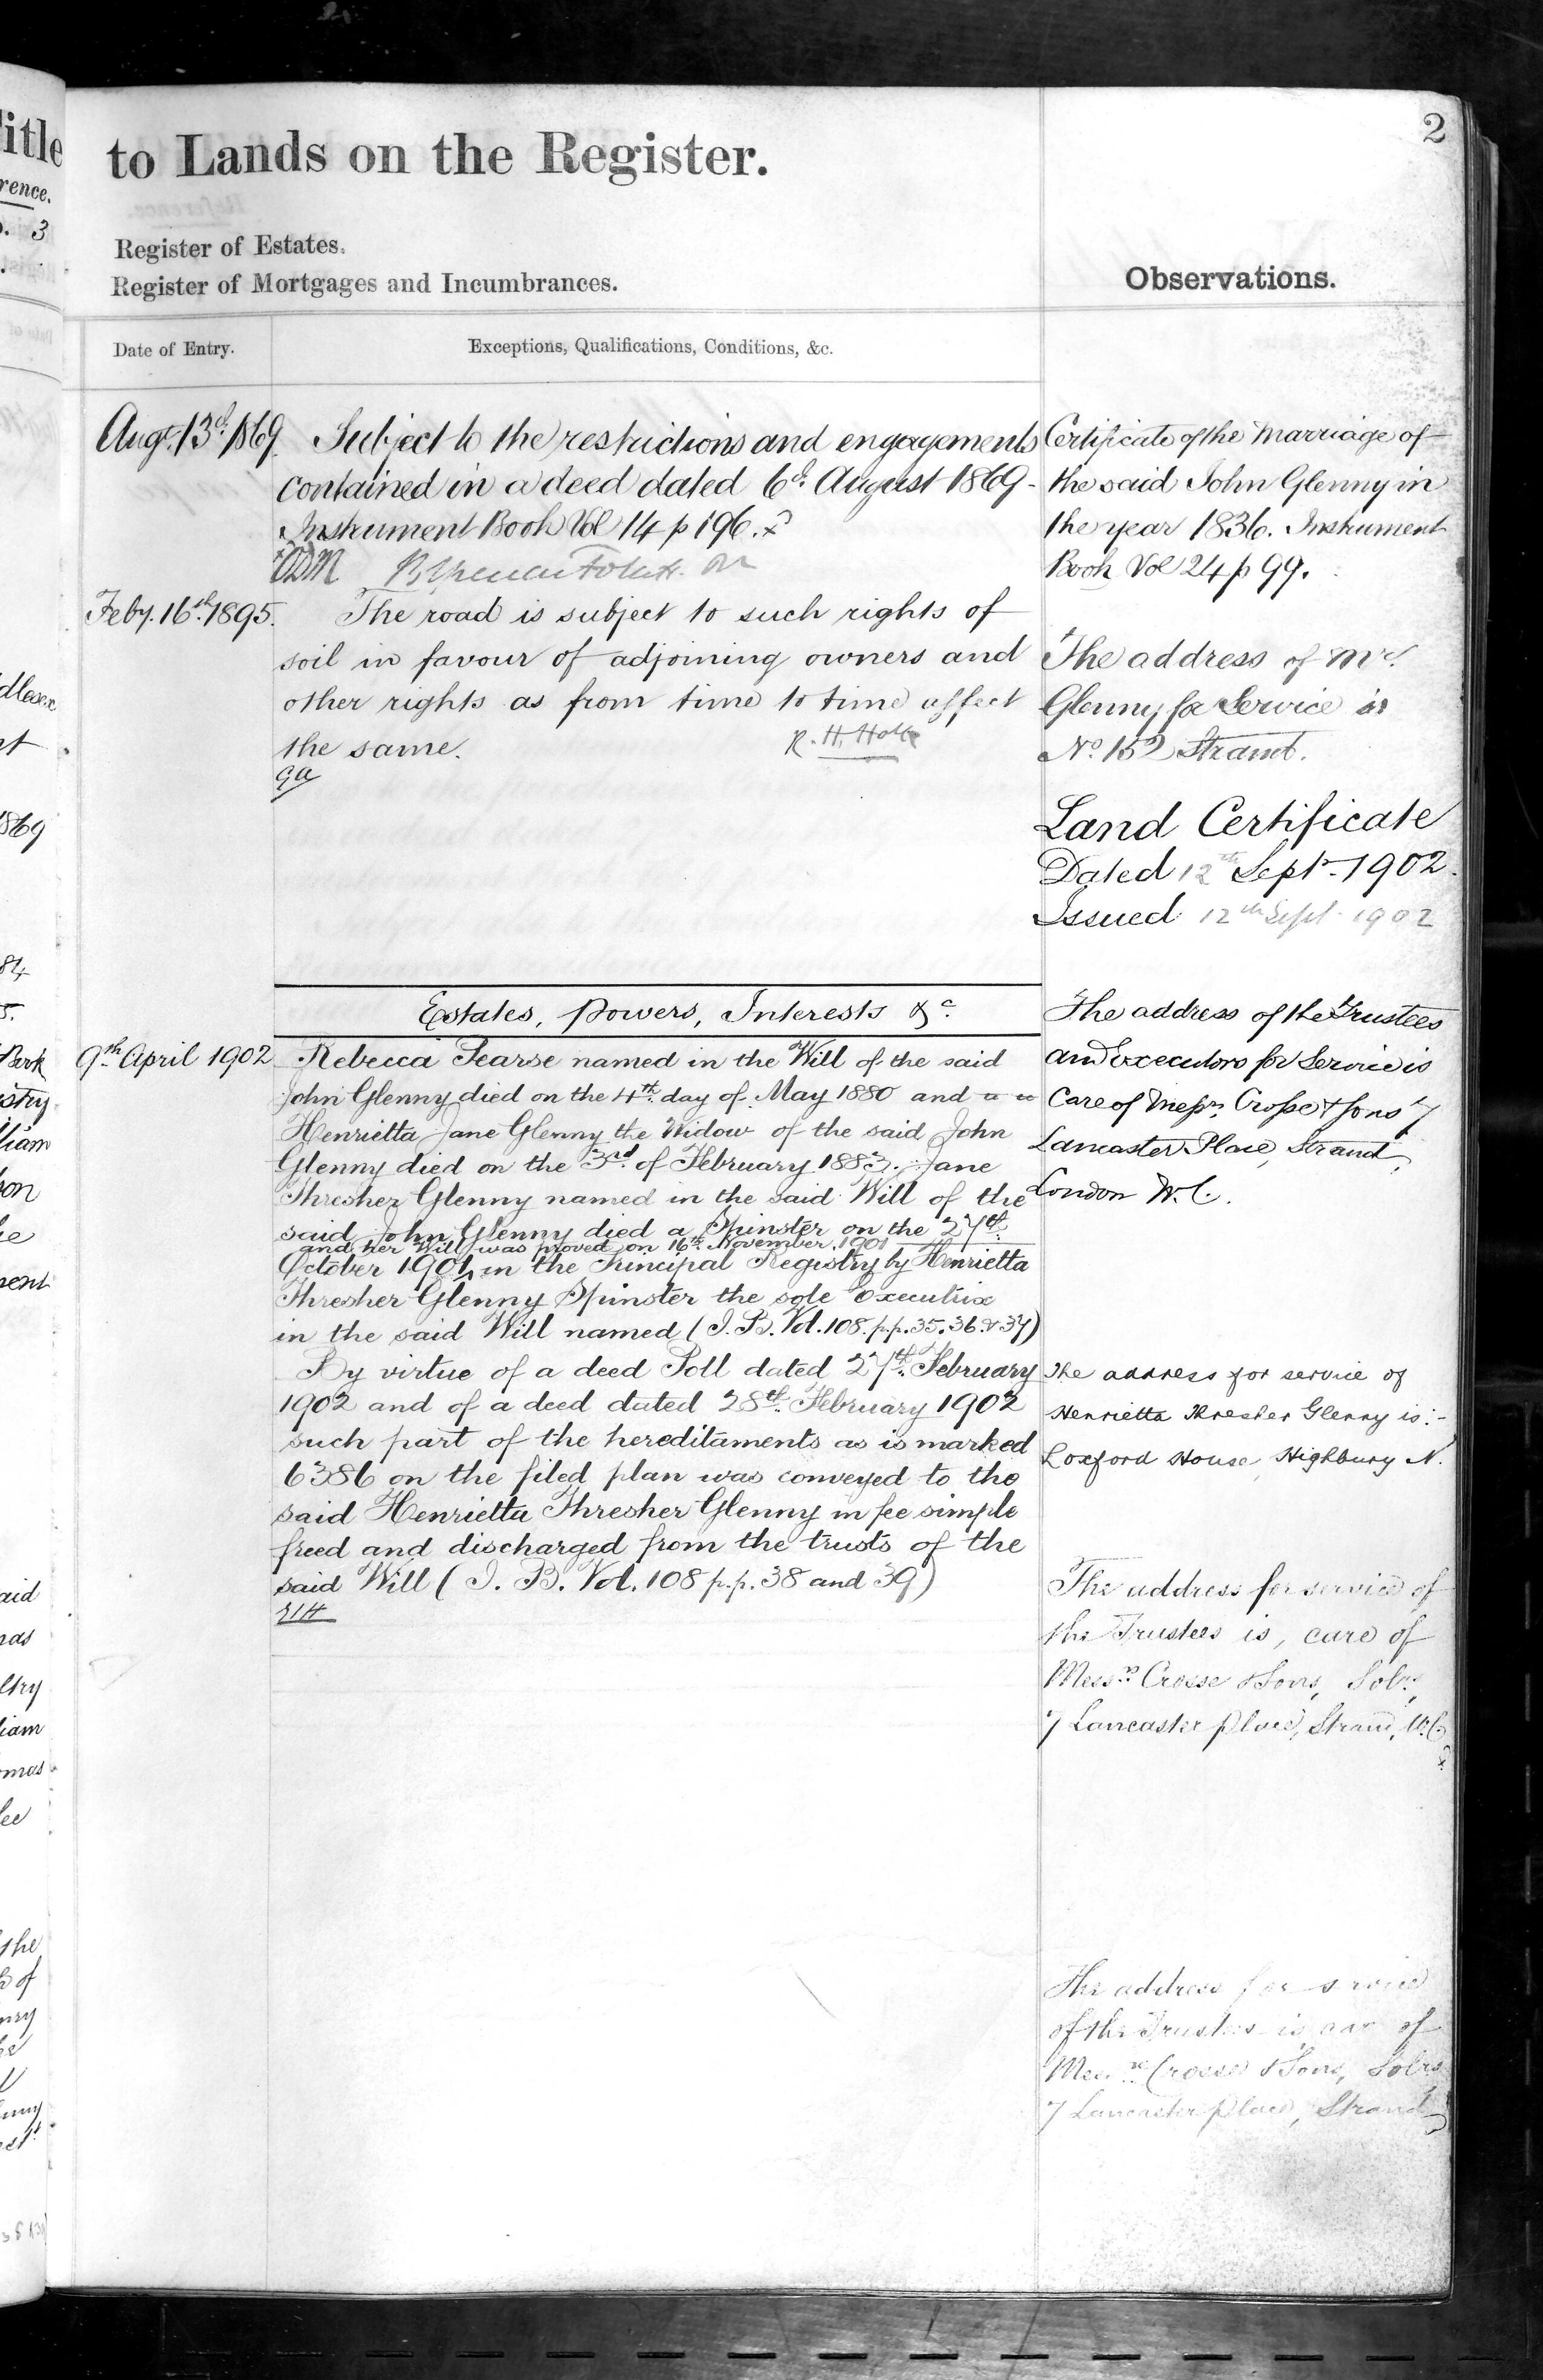 2
to Lands on the Register.
Register of Estates.
Register of Mortgages and Incumbrances.
Observations.
Date of Entry.
Exceptions, Qualifications, Conditions, &c.
Augt. 13th 1869. Subject to the restrictions and engagements
contained in a deed dated 6th August 1869 -
Instrument Book Vol 14 p 196. x
Feby. 16th 1895. The road is subject to such rights of
soil in favour of adjoining owners and
other rights as from time to time affect
the same.
R. H. Holt
Estates, Powers, Interests &c.
9th April 1902 Rebecca Pearse named in the Will of the said
John Glenny died on the 4th day of May 1880 and
Henrietta Jane Glenny the Widow of the said John
Glenny died on the 3rd of February 1883. Jane
Thresher Glenny named in the said Will of the
said John Glenny died a Spinster on the 27th
and her Will was proved on 16th November 1901
October 1901 in the Principal Registry by Henrietta
Thresher Glenny Spinster the sole Executrix
in the said Will named (I. B. Vol. 108. p.p. 35. 36. & 37)
By virtue of a deed Poll dated 27th February
1902 and of a deed dated 28th February 1902
such part of the hereditaments as is marked
6386 on the filed plan was conveyed to the
said Henrietta Thresher Glenny in fee simple
freed and discharged from the trusts of the
said Will (I. B. Vol. 108 p.p. 38 and 39)
Certificate of the Marriage of
the said John Glenny in
the year 1836. Instrument
Book Vol 24 p 99.
The address of Mr.
Glenny for Service is
No. 152 Strand.
Land Certificate
Dated 12th Sept. 1902.
Issued 12th Sept. 1902
The address of the Trustees
and Executors for Service is
Care of Messrs. Crosse & Sons 7
Lancaster Place, Strand,
London W.C.
The address for service of
Henrietta Thresher Glenny is:-
Loxford House, Highbury N.
The address for service of
the Trustees is, care of
Messrs. Crosse & Sons, Solrs,
7 Lancaster place, Strand, W.C.
The address for service
of the Trustees is care of
Messrs. Crosse & Sons, Solrs
7 Lancaster place, Strand